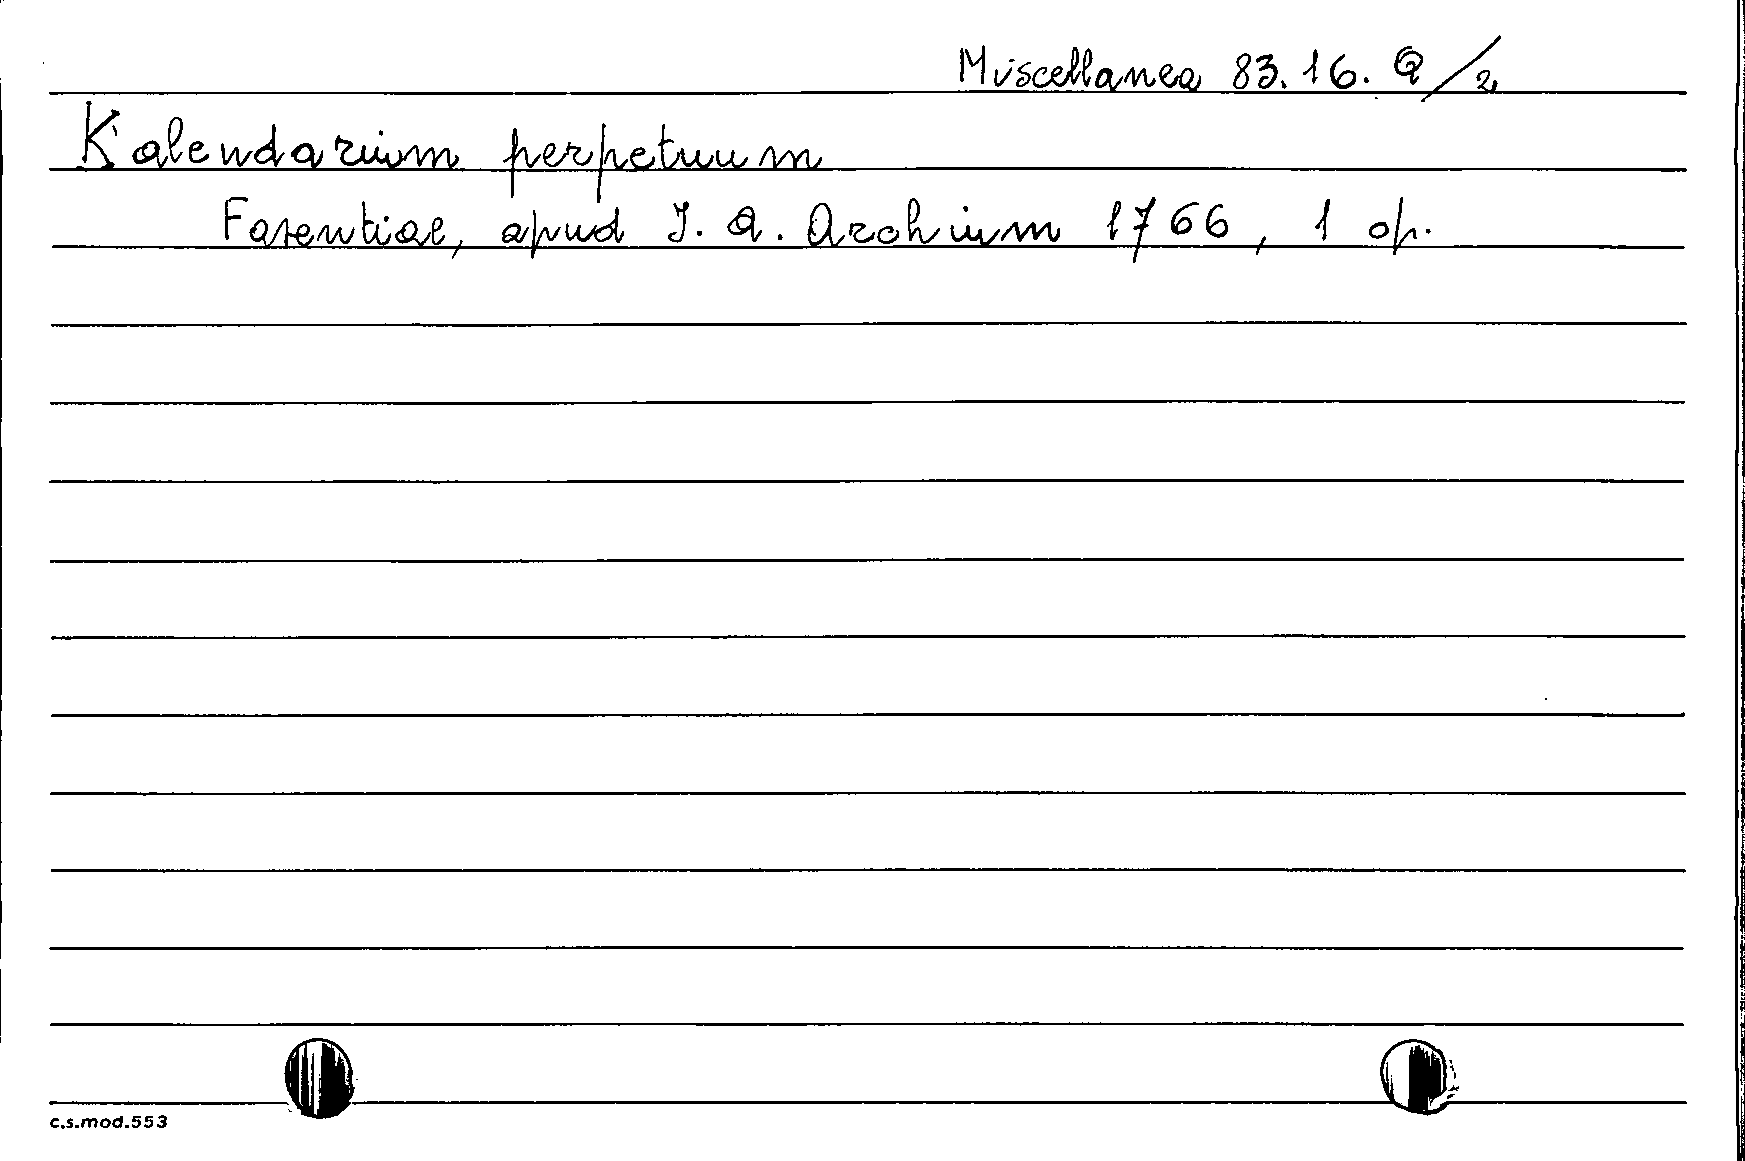 Miscellanea 83.16. Q/2
Kalendarium perpetuum
Faventiae, apud J. A. Archium 1766, 1 op.
c.s.mod.553